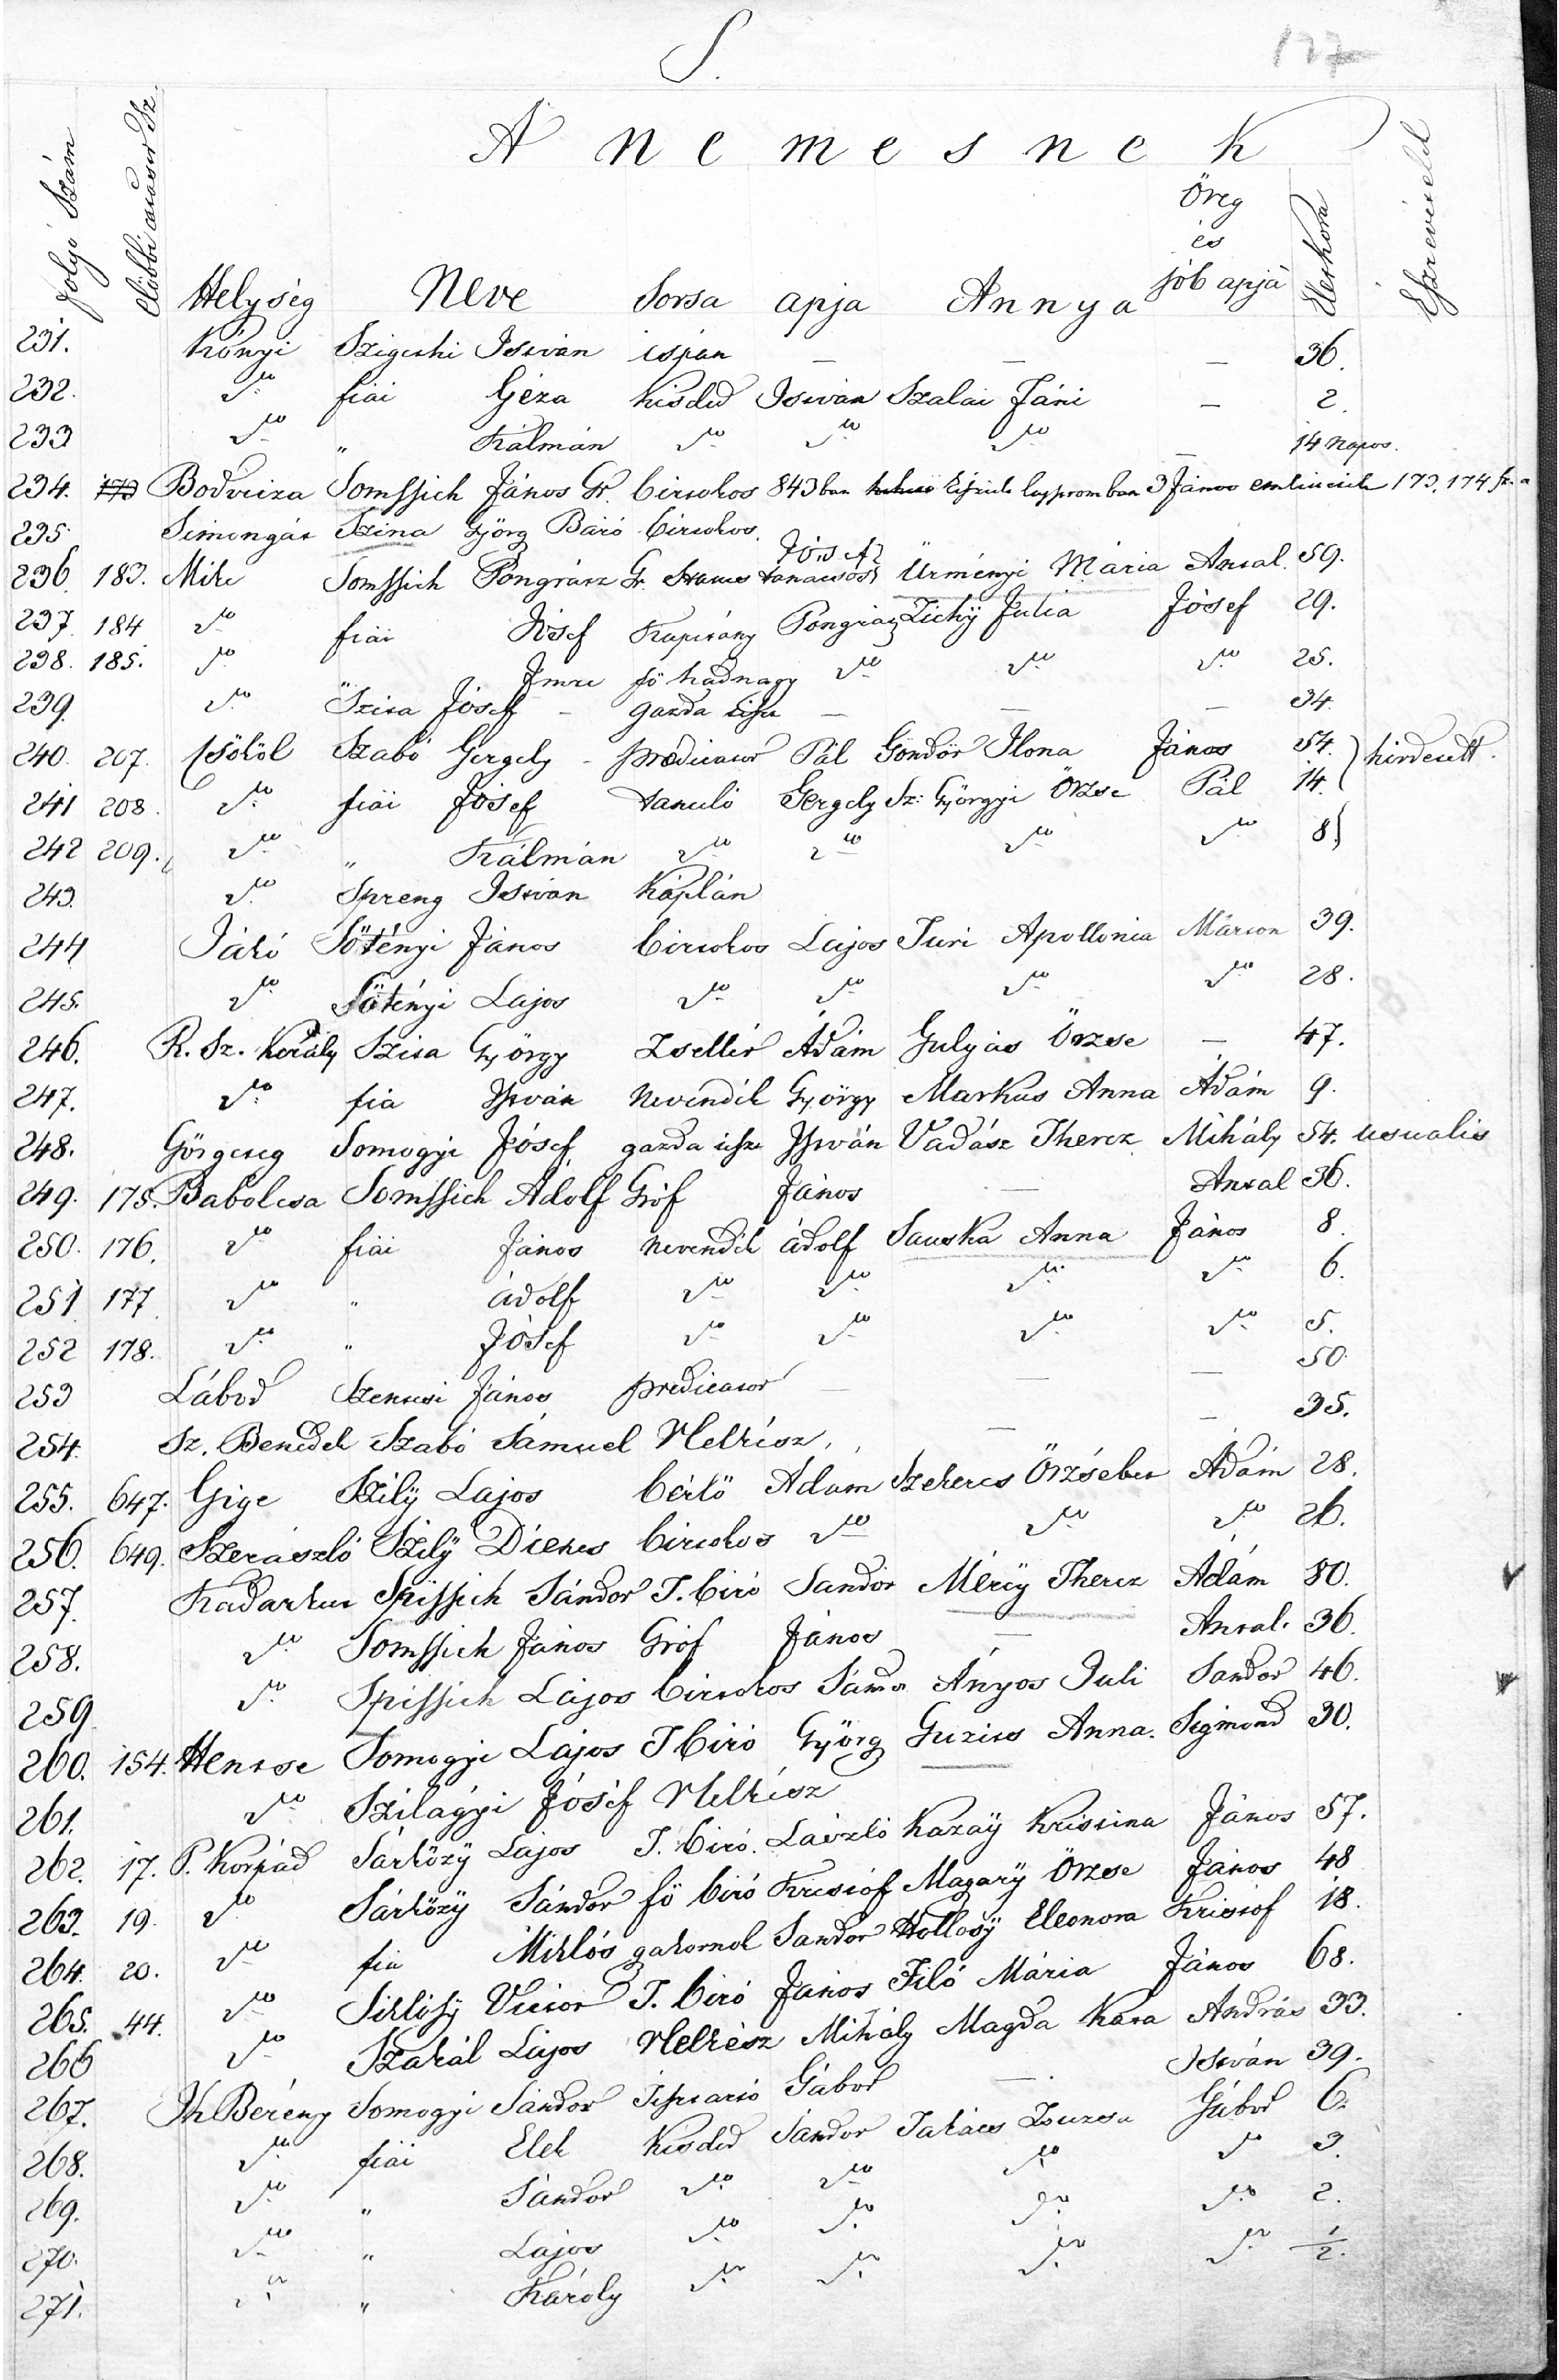 S.
127
A nemesnek
folyó Szám Előbbi Sz. Helység Neve Sorsa apja Annya Öreg és jób apja Életkora Észrevételd
231. Kónyi Szigethi István ispán — — — 36.
232. do fiai Géza kisded István Szalai Fáni — 2.
233 do " Kálmán do do do — 14 napos.
234. 173 Bodvicza Somssich János Gr. birtokos 843ban lajstromban 3 János említtetik 173, 174 sz. a
235. Simongát Szina Györg Báró birtokos.
236. 183. Mike Somssich Pongrácz Gr. tanácsos József Ürményi Mária Antal. 59.
237. 184 do fiai József Kapitány Pongrácz Zichÿ Julia József 29.
238. 185. do " Imre fö hadnagy do do do 25.
239. do Szita József – gazda tiszt — — — 34.
240. 207. Csököl Szabó Gergely – predicator Pál Gondör Ilona János 54. hirdetett.
241 208. do fiai József tanuló Gergely Sz: Györgyi Örzse Pál 14.
242 209. do " Kálmán do do do do 8
243. do Spreng István Káplán
244 Jákó Sötényi János birtokos Lajos Turi Apollonia Márton 39.
245. do Sötényi Lajos do do do do 28.
246. R. Sz. Király Szita György Zsellér Ádám Gulyás Örzse — 47.
247. do fia István nevendék György Markus Anna Ádám 9.
248. Görgeteg Somogyi József gazda tiszt István Vadász Therez Mihály 54. usualis
249. 175. Babolcsa Somssich Adolf Gróf János — Antal 36.
250. 176. do fiai János nevendék ádolf Sauska Anna János 8.
251 177 do " ádolf do do do do 6.
252 178. do " József do do do do 5.
253 Lábod Szentesi János predicator — — — 50.
254. Sz. Benedek Szabó Sámuel Helkész, — — 35.
255. 647. Gige Szilÿ Lajos bérlö Adam Szekeres Örzsébet Ádám 28.
256. 649. Szerászló Szilÿ Dienes birtokos do do do 26.
257. Kadarkut Spissich Sándor T. biró Sandor Mérëy Therez Ádám 80.
258. do Somssich János Gróf János — Antal. 36.
259 do Spissich Lajos birtokos Sándor Ányos Juli Sandor 46.
260. 154. Hentse Somogyi Lajos T biró Györg Guzics Anna. Sigmond 30.
261. do Szilagyi József Helkész
262. 17. P. Korpád Sárközÿ Lajos T. biró. László Kazaÿ Kristina János 57.
263. 19. do Sárközÿ Sándor fö biró Kristóf Magarÿ Örzse János 48
264. 20. do fia Miklós gakornok Sandor Hollosÿ Eleonora Kristof 18.
265. 44. do Siklósÿ Victor T. biró János Filó Mária János 68.
266 do Szakál Lajos Helkész Mihály Magda Kata András 33.
267. Ih Berény Somogyi Sándor Gábor — István 39.
268. do fiai Elek kisded Sándor Takács Zsuzsa Gábor 6.
269. do " Sándor do do do do 3.
270. do " Lajos do do do do 2.
271. do " Károly do do do do 1/2.